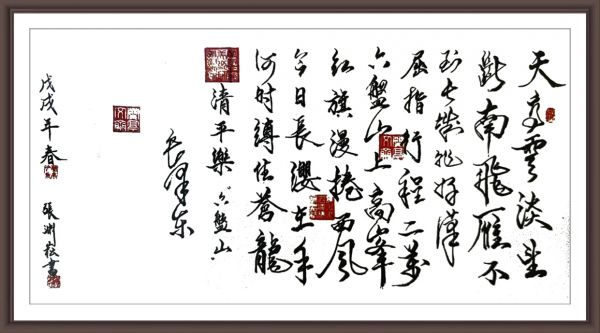 天高雲淡望
斷南飛雁不
到长城非好漢
屈指行程二萬
六盤山上高峯
紅旗漫捲西風
今日長纓在手
何時縛住蒼龍
清平樂 六盤山
毛泽东
戊戌年春 張洲書